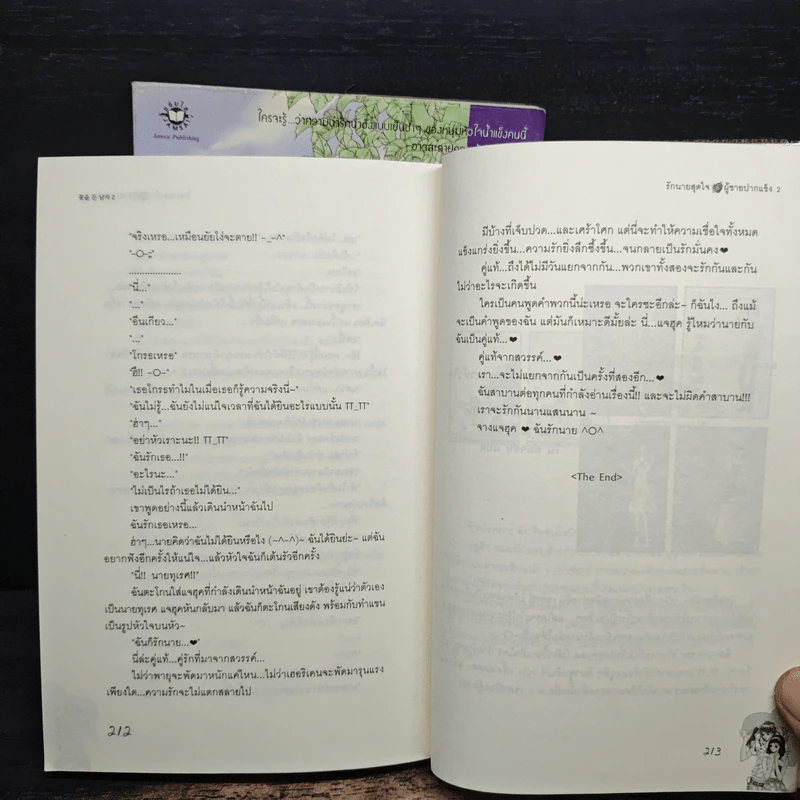 Jamsai Publishing
ใครจะรู้...ว่าความน่ารักน่าชังแบบเย็นชาๆ ของหนุ่มหัวใจน้ำแข็งคนนี้
2
"จริงเหรอ...เหมือนยัยโง่จะตาย!! -_-^"
"-O-;"
....................
"นี่..."
"..."
"อึนเกียว..."
"..."
"โกรธเหรอ"
"ชึ!! -O-"
"เธอโกรธทำไมในเมื่อเธอก็รู้ความจริงนี่~"
"ฉันไม่รู้...ฉันยังไม่แน่ใจเวลาที่ฉันได้ยินอะไรแบบนั้น TT_TT"
"ฮ่าๆ..."
"อย่าหัวเราะนะ!! TT_TT"
"ฉันรักเธอ...!!"
"อะไรนะ..."
"ไม่เป็นไรถ้าเธอไม่ได้ยิน..."
เขาพูดอย่างนี้แล้วเดินนำหน้าฉันไป
ฉันรักเธอเหรอ...
ฮ่าๆ...นายคิดว่าฉันไม่ได้ยินหรือไง (~^-^)~ ฉันได้ยินย่ะ~ แต่ฉัน
อยากฟังอีกครั้งให้แน่ใจ...แล้วหัวใจฉันก็เต้นรัวอีกครั้ง
"นี่!! นายทุเรศ!!"
ฉันตะโกนใส่แจฮุคที่กำลังเดินนำหน้าฉันอยู่ เขาต้องรู้แน่ว่าตัวเอง
เป็นนายทุเรศ แจฮุคหันกลับมา แล้วฉันก็ตะโกนเสียงดัง พร้อมกับทำแขน
เป็นรูปหัวใจบนหัว~
"ฉันก็รักนาย...❤"
นี่ล่ะคู่แท้...คู่รักที่มาจากสวรรค์...
ไม่ว่าพายุจะพัดมาหนักแค่ไหน...ไม่ว่าเฮอริเคนจะพัดมารุนแรง
เพียงใด...ความรักจะไม่แตกสลายไป
212
รักนายสุดใจ ผู้ชายปากแข็ง 2
มีบ้างที่เจ็บปวด...และเศร้าโศก แต่นี่จะทำให้ความเชื่อใจทั้งหมด
แข็งแกร่งยิ่งขึ้น...ความรักยิ่งลึกซึ้งขึ้น...จนกลายเป็นรักมั่นคง❤
คู่แท้...ถึงได้ไม่มีวันแยกจากกัน...พวกเขาทั้งสองจะรักกันและกัน
ไม่ว่าอะไรจะเกิดขึ้น
ใครเป็นคนพูดคำพวกนี้น่ะเหรอ จะใครซะอีกล่ะ~ ก็ฉันไง... ถึงแม้
จะเป็นคำพูดของฉัน แต่มันก็เหมาะดีมั้ยล่ะ นี่...แจฮุค รู้ไหมว่านายกับ
ฉันเป็นคู่แท้...❤
คู่แท้จากสวรรค์...❤
เรา...จะไม่แยกจากกันเป็นครั้งที่สองอีก...❤
ฉันสาบานต่อทุกคนที่กำลังอ่านเรื่องนี้!! และจะไม่ผิดคำสาบาน!!!
เราจะรักกันนานแสนนาน ~
จางแจฮุค ❤ ฉันรักนาย ^O^
<The End>
213